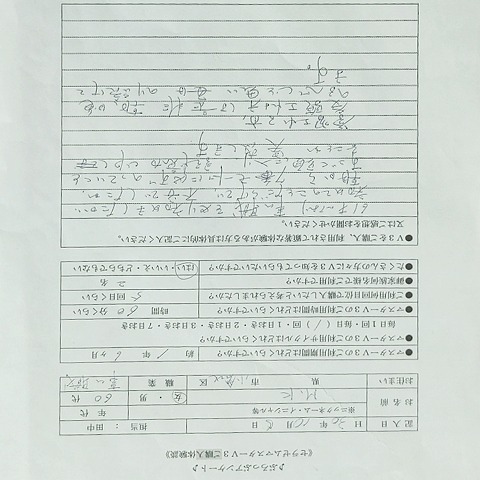 ♪ぷろっぷアンケート♪
《セラゼムマスターV3ご購入体験談》
記入日 日 30年10月15日 担当：田中
お名前 ※ニックネーム・イニシャル等 年代
M.K 女・男 60代
お住まい 県 市 小倉 区 職業 事ム職
●マスターV3のご利用期間はどれくらいですか？ 約 1年 6ヶ月
●マスターV3のご利用サイクルはどれくらいですか？
毎日1回・毎日(1)回・1日おき・2日おき・3日おき・7日おき
●マスターV3のご利用時間はどれくらいですか？ 時間 60分くらい
●ご利用何回目位で購入したいと考えられましたか？ 5回目くらい
●御家族何名様でご利用ですか？ 2名
●たくさんの方々にV3を知ってもらいたいですか？ はい・いいえ・どちらでもない
●V3をご購入、利用されて顕著な体験がある方は具体的にご記入ください。
又はご感想をお聞かせください。
61才になり 事ム職をやり初めましたが、
初めてのことだらけで、不安でしたが、
朝から モードに必ずのっていくと
すごく頭に入り、記憶力
ることが 実感します。
学習エネです。
受験エネの方は是非に 朝、晩
のるべしと思い 毎日 のり続けて
ます。